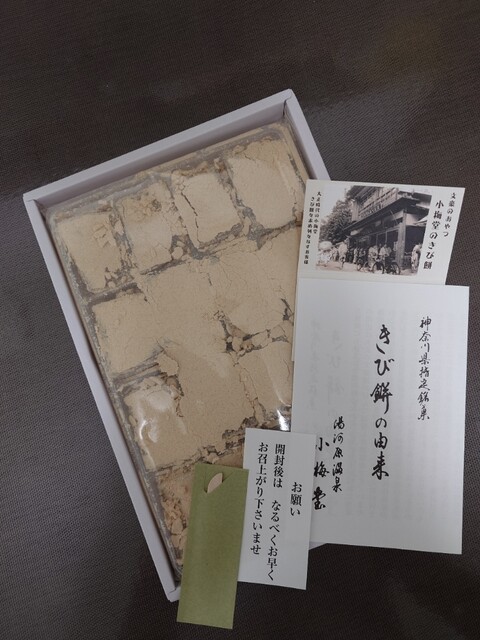 文豪のおやつ
小梅堂のきび餅
大正時代の小梅堂
神奈川県指定銘菓
きび餅の由来
湯河原温泉
小梅堂
お願い
開封後は なるべくお早く
お召上がり下さいませ